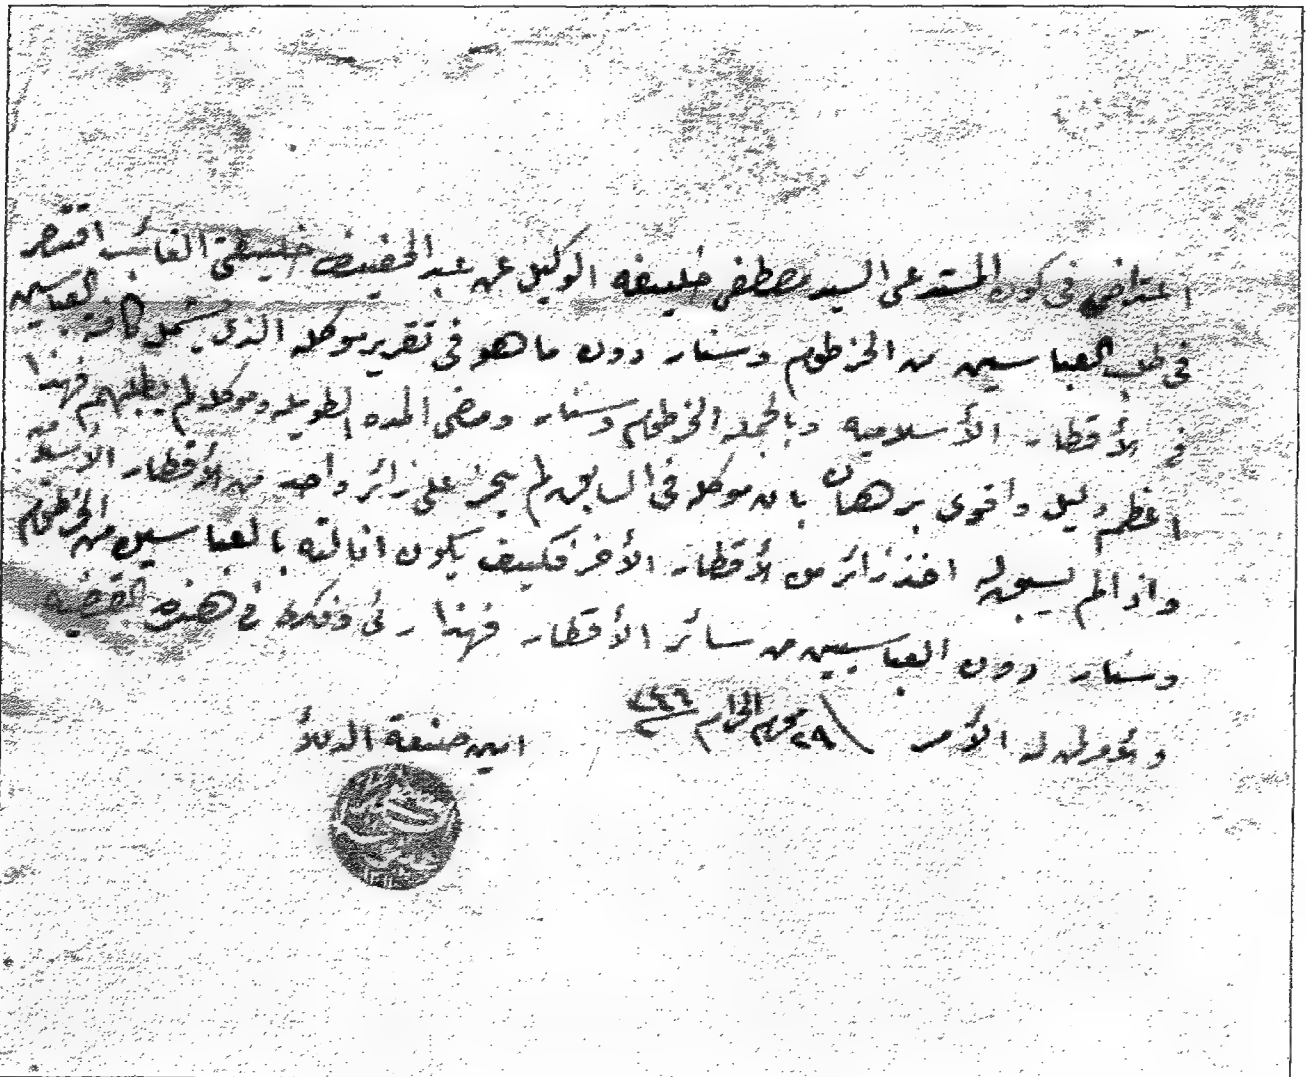 اعتراضي في كون المستدعي السيد مصطفى خليفه الوكيل عن عبد الحفيض خليفتي الغائب اقتصر
في طلب العباسيين من الخرطوم وسنار دون ما هو في تقرير موكله الذي يشمل كافة العباسيين
في الأقطار الأسلاميه وبالجمله الخرطوم وسنار ومضى المده الطويله وموكله لم يطلبهم فهذا
اعظم دليل واقوى برهان بان موكله في السابق لم يحجز على زائر واحد من الأقطار الأسلاميه
واذا لم يسبق له اخذ زائر من الأقطار الأخر فكيف يكون اناله بالعباسيين من الخرطوم
وسنار دون العباسيين من سائر الأقطار فهذا رئي وفكري في هذه القضيه
ولمولى له الأمر ٢٩ محرم الحرام
امين صنيعة الدلاْ